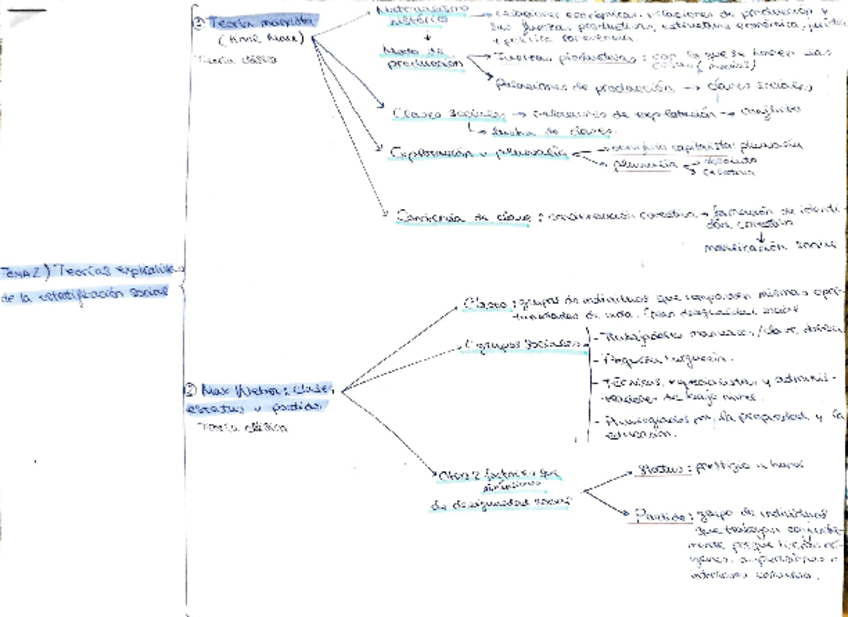 ① Teoría marxista
(Karl Marx)
Teoría clásica
Materialismo
histórico
relaciones económicas: relaciones de producción y
sus fuerzas productivas, estructura económica, jurídi
y política
Modo de
producción
Fuerzas productivas: con lo que se hacen las
cosas (medios)
Relaciones de producción → clases sociales
Clases sociales → relaciones de explotación → conflicto
↳ lucha de clases.
Explotación y plusvalía
capitalista: plusvalía
plusvalía
absoluta
relativa
Conciencia de clase: colectiva → formación de identi-
dad colectiva
↓
movilización social
TEMA 2) Teorías explicativas
de la estratificación social
② Max Weber: clase,
estatus y partido
Teoría clásica
Clases: grupos de individuos que comparten mismas opor-
tunidades de vida. desigualdad social
4 grupos sociales
- Trabajadores manuales / clase obrera
- Pequeña burguesía.
- Técnicos, especialistas y adminis-
tradores de bajo nivel.
- Privilegiados por la propiedad y la
educación.
Otros 2 factores que
dimensiones
de desigualdad social
Status: prestigio u honor
Partido: grupo de individuos
que trabajan conjunta-
mente porque tienen orí-
genes, aspiraciones o
intereses comunes.